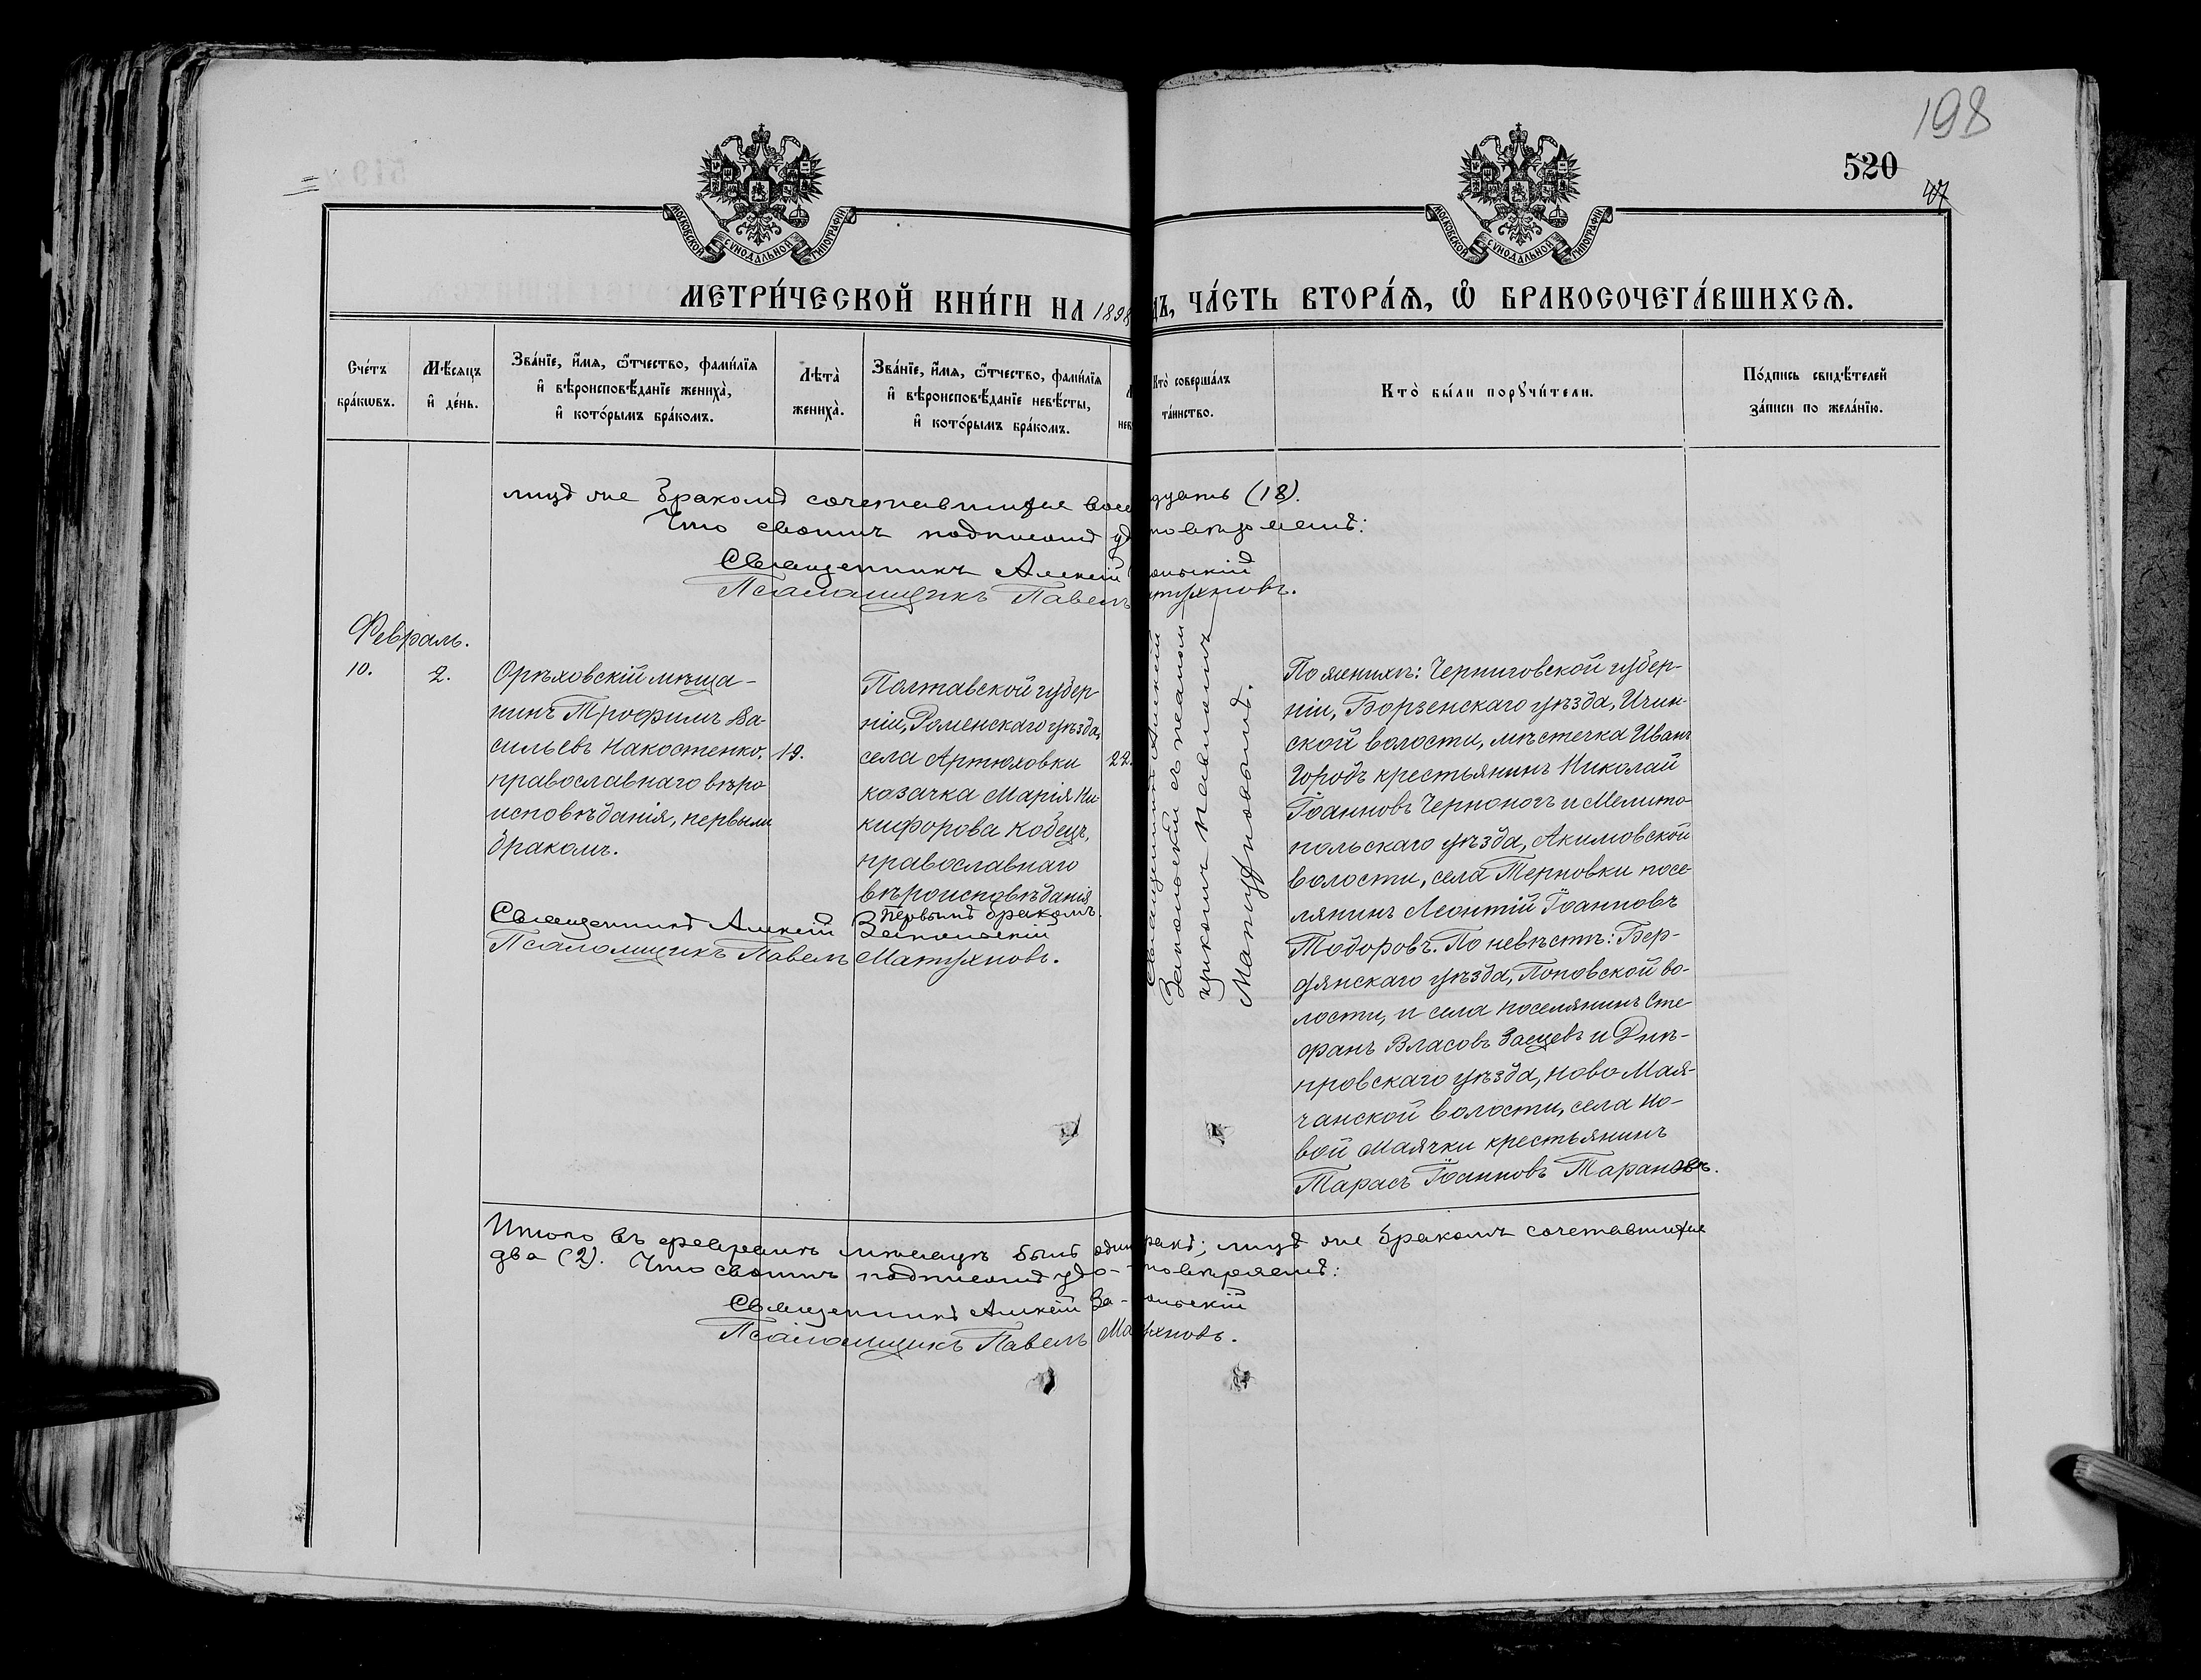 198
520
47
МОСКОВСКОЙ СУНОДАЛЬНОЙ ТИПОГРАФІИ
МОСКОВСКОЙ СУНОДАЛЬНОЙ ТИПОГРАФІИ
МЕТРИ́ЧЕСКОЙ КНИ́ГИ НА 1898
ДЪ, ЧА́СТЬ ВТОРА́Ѧ, Ѽ БРАКОСОЧЕТА́ВШИХСѦ.
Сче́тъ бра́кѡвъ.
Мѣ́сяцъ и҆ де́нь.
Зва́нїе, и҆́мѧ, ѻ҆́тчество, фами́лїѧ и҆ вѣроисповѣ́данїе жениха̀, и҆ кото́рымъ бра́комъ.
Лѣта̀ жениха̀.
Зва́нїе, и҆́мѧ, ѻ҆́тчество, фами́лїѧ и҆ вѣроисповѣ́данїе невѣ́сты, и҆ кото́рымъ бра́комъ.
Кто̀ соверша́лъ та́инство.
Кто̀ бы́ли порꙋчи́тели.
По́дпись свидѣ́телей за́писи по жела́нїю.
лицъ же бракомъ сочетавшихся восе дцать (18).
Что своимъ подписомъ уд товѣряемъ:
Священникъ Алексій
Псаломщикъ Павелъ
Февраль.
10.
2.
Орѣховскій мѣща-
нинъ Трофимъ Ва-
сильевъ Накостенко,
православнаго вѣро
исповѣданія, первымъ
бракомъ.
19.
Полтавской губер
ніи, Роменскаго уѣзда,
села Артюховки
козачка Марія Ни
кифорова Кобецъ,
православнаго
вѣроисповѣданія
первымъ бракомъ.
22.
Священникъ Алексій
съ псалом-
щикомъ Павломъ
По женихѣ: Черниговской губер-
ніи, Борзенскаго уѣзда, Ичин-
ской волости, мѣстечка Иванъ
Городъ крестьянинъ Николай
Іоанновъ Черноногъ и Мелито-
польскаго уѣзда, Акимовской
волости, села Терновки посе-
лянинъ Леонтій Іоанновъ
Тодоровъ. По невѣстѣ: Бер-
дянскаго уѣзда, Поповской во-
лости, и села поселянинъ Сте-
фанъ Власовъ Заецевъ и Днѣ-
провскаго уѣзда, Ново Мая-
чанской волости, села Но-
вой Маячки крестьянинъ
Тарасъ Іоанновъ Тарановъ.
Священникъ Алексій
Псаломщикъ Павелъ Матухновъ.
Итого въ февралѣ мѣсяцѣ былъ один ракъ; лицъ же бракомъ сочетавшихся
два (2). Что своимъ подписомъ удо- товѣряемъ:
Священникъ Алексій За-
Псаломщикъ Павелъ Ма ухновъ.